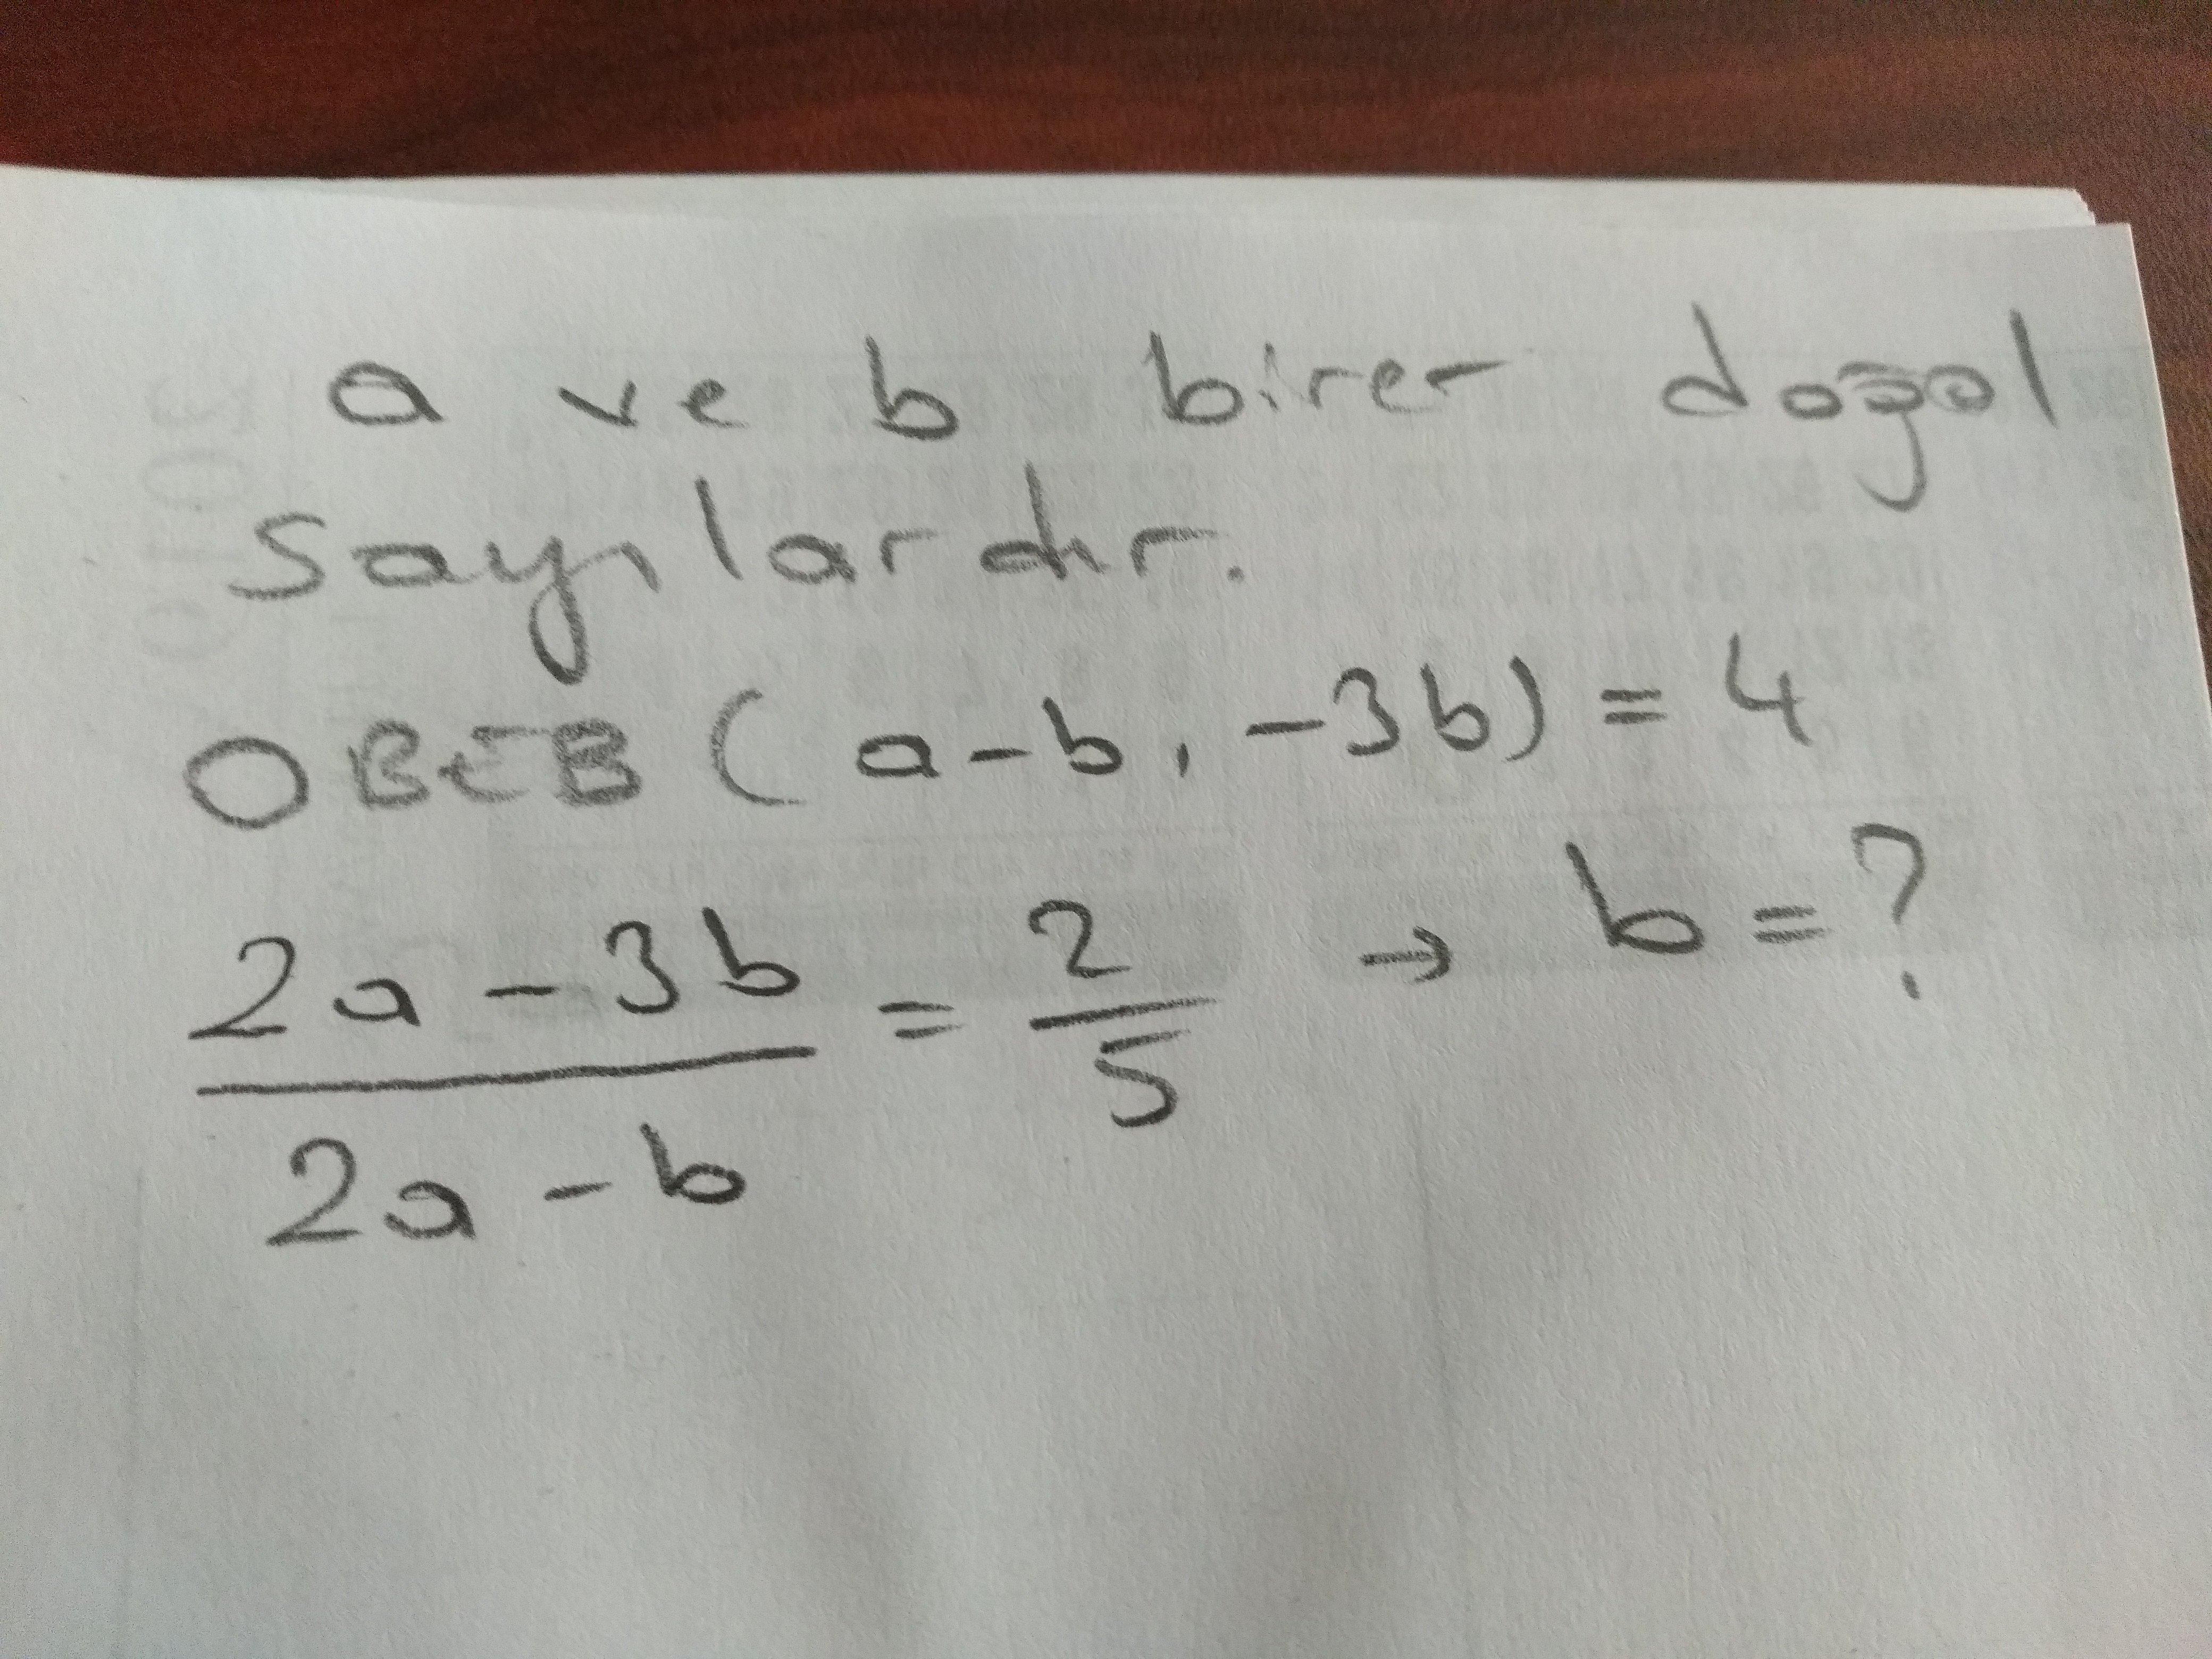 a ve b birer doğal
sayılardır.
OBEB (a-b, -3b) = 4
2a - 3b / 2a - b = 2 / 5 → b = ?